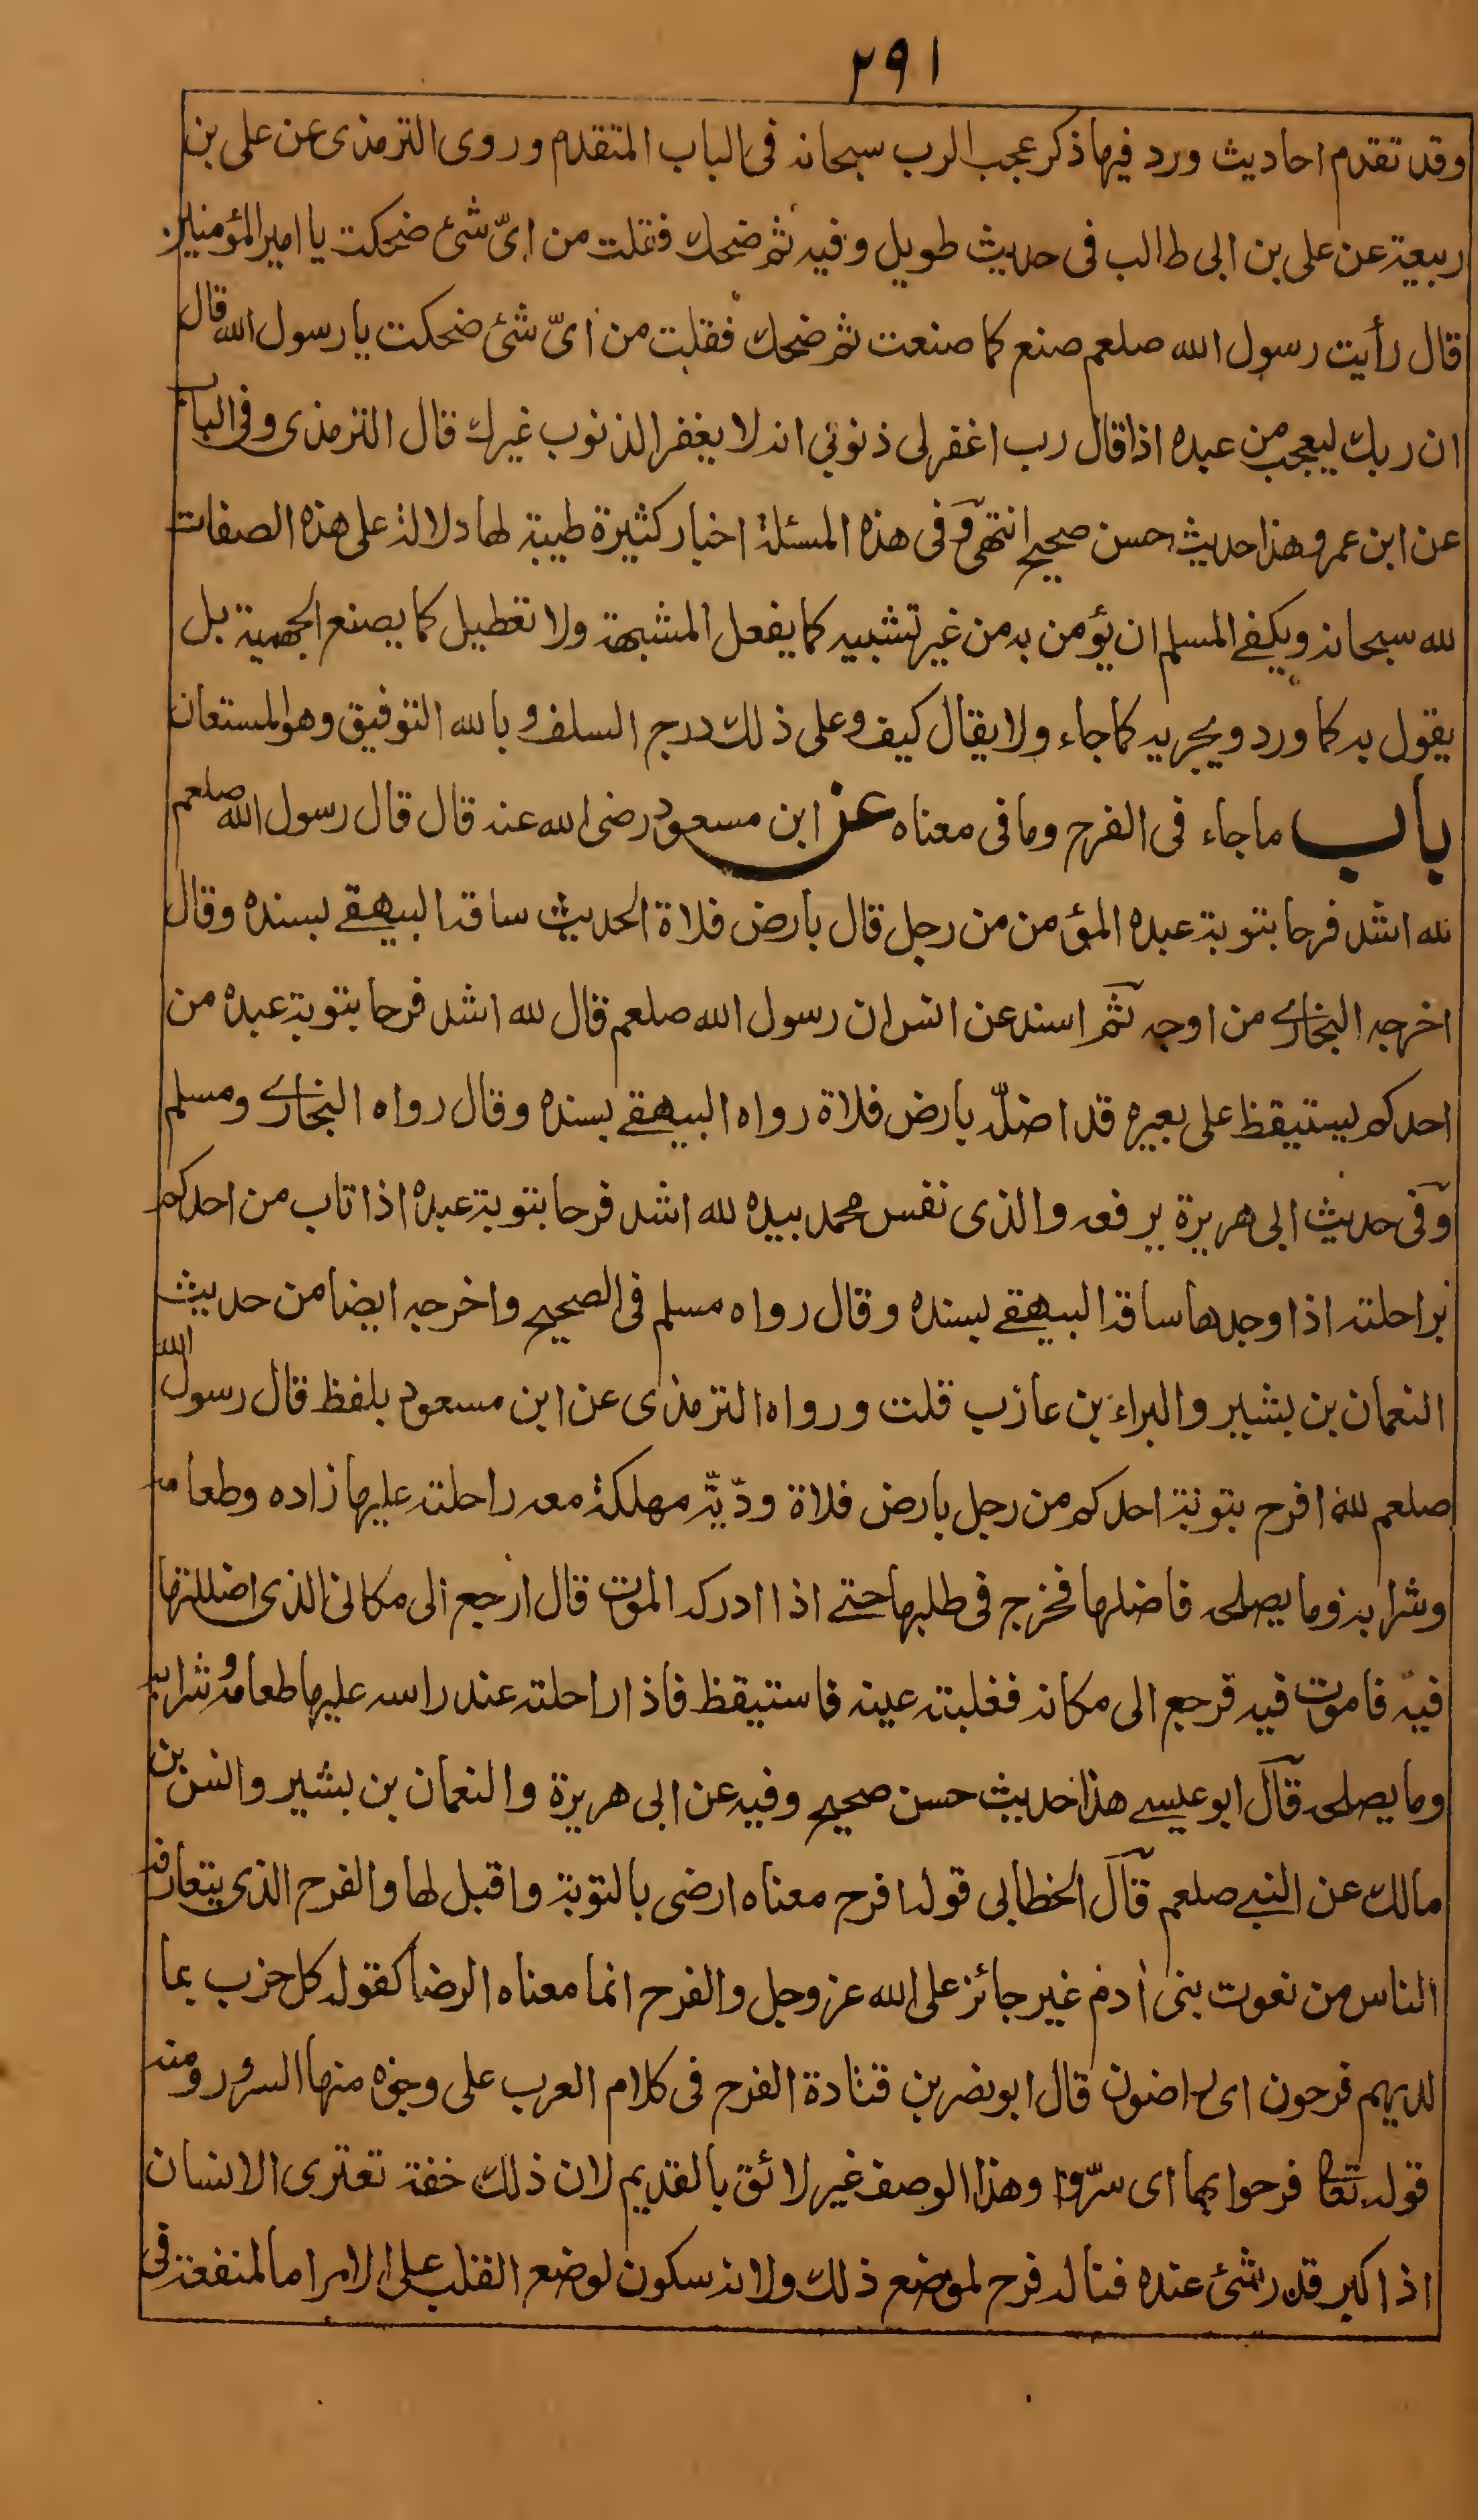 ٢٩١
وقد تقدم احاديث ورد فيها ذكر عجب الرب سبحانه فى الباب المتقدم وروى الترمذى عن على بن
ربيعة عن على بن ابى طالب فى حديث طويل وفيه ثم ضحك فقلت من اىّ شئ ضحكت يا امير المؤمنين
قال رأيت رسول الله صلعم صنع كما صنعت ثم ضحك فقلت من اىّ شئ ضحكت يا رسول الله قال
ان ربك ليعجب من عبده اذا قال رب اغفر لى ذنوبى انه لا يغفر الذنوب غيرك قال الترمذى وفى الباب
عن ابن عمر وهذا حديث حسن صحيح انتهى وفى هذه المسئلة اخبار كثيرة طيبة لها دلالة على هذه الصفات
لله سبحانه ويكفى المسلم ان يؤمن به من غير تشبيه كما يفعل المشبهة ولا تعطيل كما يصنع الجهمية بل
يقول به كما ورد ويجريه كما جاء ولا يقال كيف وعلى ذلك درج السلف وبالله التوفيق وهو المستعان
باب ما جاء فى الفرح وما فى معناه عن ابن مسعود رضى الله عنه قال قال رسول الله صلعم
لله اشد فرحا بتوبة عبده المؤمن من رجل قال بارض فلاة الحديث ساقه البيهقے بسنده وقال
اخرجه البخارے من اوجه ثم اسند عن انس ان رسول الله صلعم قال لله اشد فرحا بتوبة عبده من
احدكم يستيقظ على بعيره قد اضلّه بارض فلاة رواه البيهقے بسنده وقال رواه البخارے ومسلم
وفى حديث ابى هريرة يرفعه والذى نفس محمد بيده لله اشد فرحا بتوبة عبده اذا تاب من احدكم
براحلته اذا وجدها ساقه البيهقے بسنده وقال رواه مسلم فى الصحيح واخرجه ايضا من حديث
النعمان بن بشير والبراء بن عازب قلت ورواه الترمذى عن ابن مسعود بلفظ قال رسول الله
صلعم لله افرح بتوبة احدكم من رجل بارض فلاة ودّيّة مهلكة معه راحلته عليها زاده وطعامه
وشرابه وما يصلحه فاضلها فخرج فى طلبها حتے اذا ادركه الموت قال ارجع الى مكانى الذى اضللتها
فيه فاموت فيه فرجع الى مكانه فغلبته عينه فاستيقظ فاذا راحلته عند راسه عليها طعامه وشرابه
وما يصلحه قال ابو عيسے هذا حديث حسن صحيح وفيه عن ابى هريرة والنعمان بن بشير وانس بن
مالك عن النبے صلعم قال الخطابى قوله افرح معناه ارضى بالتوبة واقبل لها والفرح الذى يتعارفه
الناس من نعوت بنى أدم غير جائز على الله عز وجل والفرح انما معناه الرضا كقوله كل حزب بما
لديهم فرحون اى راضون قال ابو نصر بن قتادة الفرح فى كلام العرب على وجوه منها السرور ومنه
قوله تعا فرحوا بها اى سرّوا وهذا الوصف غير لائق بالقديم لان ذلك خفة تعترى الانسان
اذا كبر قدر شئ عنده فناله فرح لموضع ذلك ولانه سكون لوضع القلب على الامر اما لمنفعة فى